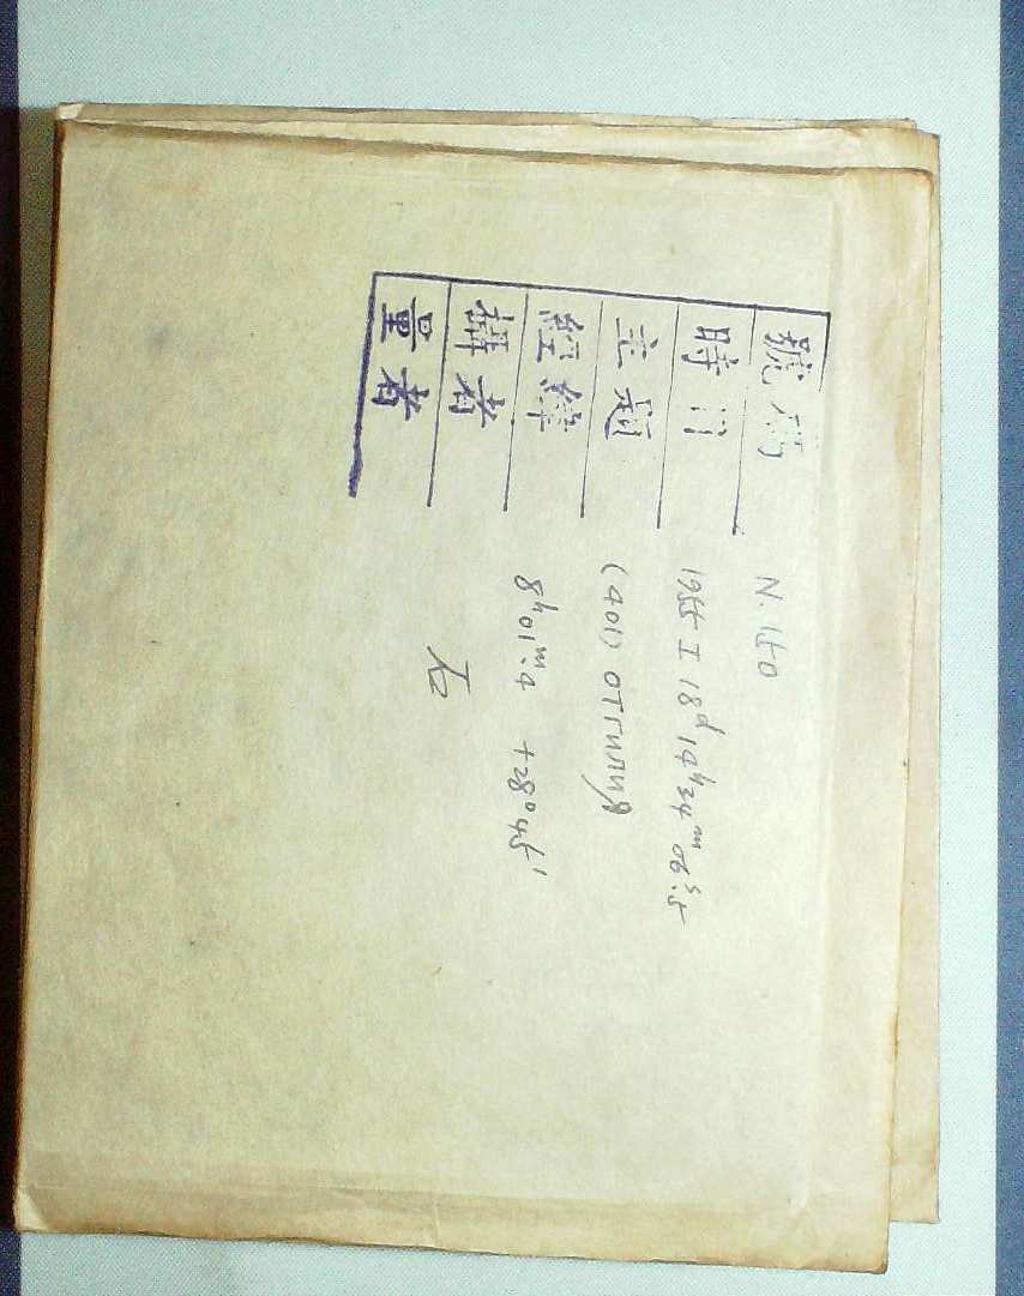 號碼 N. 150
時日 1955 I 18ᵈ 14ʰ34ᵐ06ˢ.5
主題 (401) Оттилия
經緯 8ʰ01ᵐ.4 +28°45'
攝者 石
量者